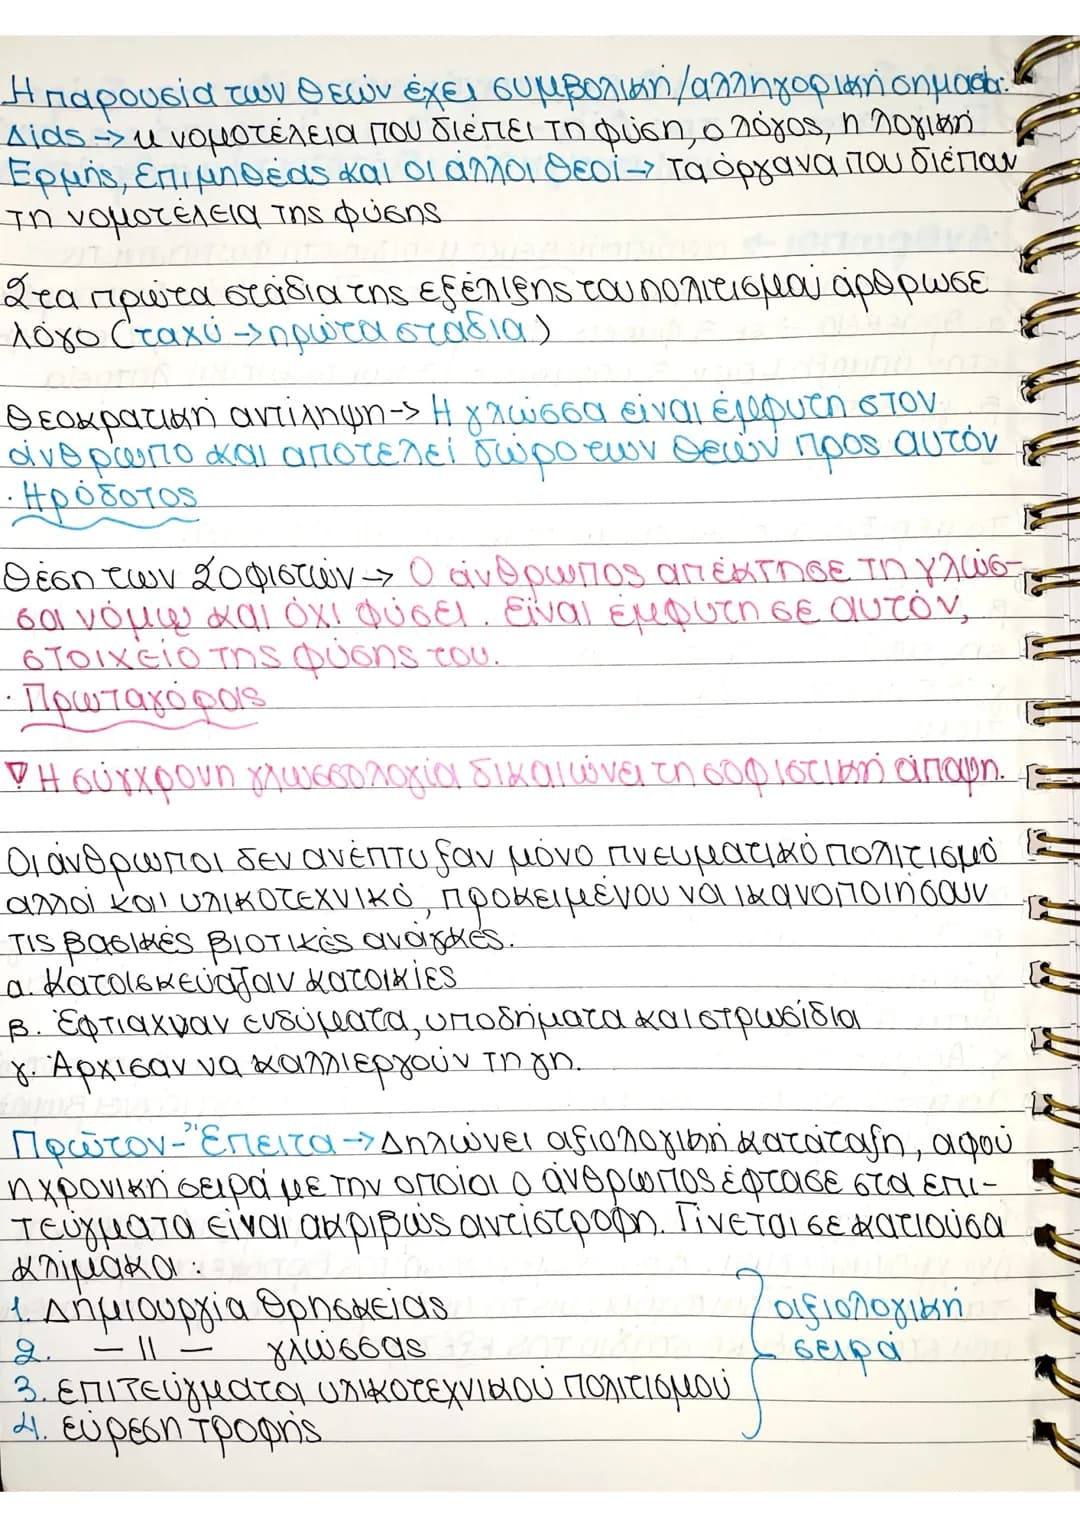 Η παρουσία των θεών έχει συμβολική/αλληγορική σημασία:
Δίας -> η νομοτέλεια που διέπει τη φύση, ο λόγος, η λογική
Ερμής, Επιμηθέας και οι άλλοι θεοί -> Τα όργανα που διέπαν
τη νομοτέλεια της φύσης
Στα πρώτα στάδια της εξέλιξης του πολιτισμού άρθρωσε
λόγο (ταχύ -> πρώτα στάδια)
Θεοκρατική αντίληψη -> Η γλώσσα είναι έμφυτη στον
άνθρωπο και αποτελεί δώρο των θεών προς αυτόν
· Ηρόδοτος
Θέση των Σοφιστών -> Ο άνθρωπος απέκτησε τη γλώσ-
σα νόμιω και όχι φύσει. Είναι έμφυτη σε αυτόν,
στοιχείο της φύσης του.
· Πρωταγόρας
▽ Η σύγχρονη γλωσσολογία δικαιώνει τη σοφιστική άποψη.
Οι άνθρωποι δεν ανέπτυξαν μόνο πνευματικό πολιτισμό
αλλά και υλικοτεχνικό, προκειμένου να ικανοποιήσουν
τις βασικές βιοτικές ανάγκες.
α. Κατασκεύαζαν κατοικίες
β. Έφτιαχναν ενδύματα, υποδήματα και στρωσίδια
γ. Άρχισαν να καλλιεργούν τη γη.
Πρῶτον - Ἔπειτα -> Δηλώνει αξιολογική κατάταξη, αφού
η χρονική σειρά με την οποία ο άνθρωπος έφτασε στα επι-
τεύγματα είναι ακριβώς αντίστροφη. Γίνεται σε κατιούσα
κλίμακα:
1. Δημιουργία θρησκείας
2. — || — γλώσσας
3. επιτεύγματα υλικοτεχνικού πολιτισμού
4. εύρεση τροφής
αξιολογική
σειρά